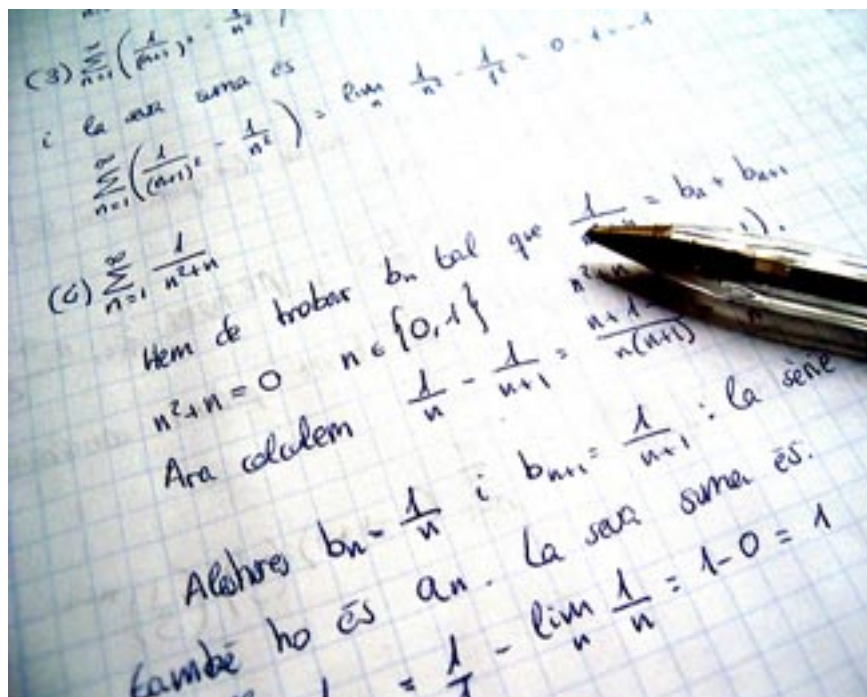 (3) ∑_{n=1}^{∞} (1/(n+1)² - 1/n²)
i la seva suma és
∑_{n=1}^{∞} (1/(n+1)² - 1/n²) = lim_n 1/n² - 1/1² = 0 - 1 = -1
(6) ∑_{n=1}^{∞} 1/(n²+n)
Hem de trobar b_n tal que = b_n + b_{n+1}
n²+n = 0 n ∈ {0,-1}
Ara calculem 1/n - 1/(n+1) = n+1 /n(n+1)
Aleshores b_n = 1/n i b_{n+1} = 1/(n+1) : la sèrie
també ho és a_n. La seva suma és.
= 1/1 - lim_n 1/n = 1-0 = 1